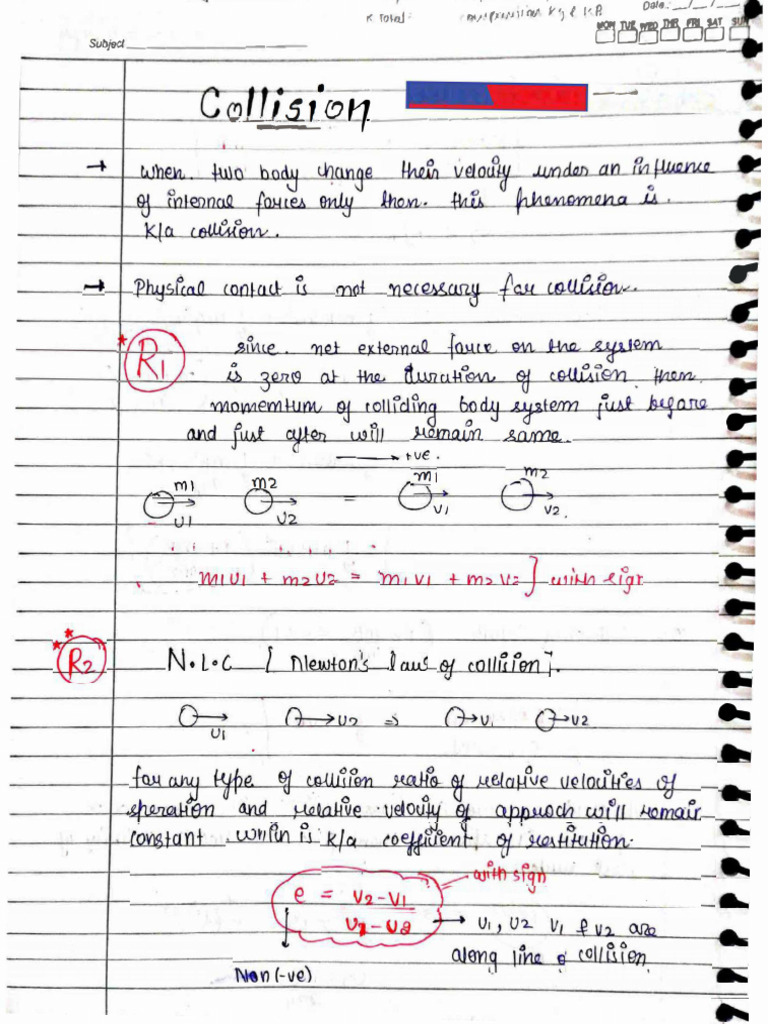 K Total:
Date: __/__/__
MON TUE WED THR FRI SAT SUN
Subject
Collision
→ when two body change their velouity under an influence
of internal forces only then. this phenomena is.
k/a collision.
→ Physical contact is not necessary for collision.
* R1 since. net external force on the system
is zero at the duration of collision then.
momentum of colliding body system just before
and just after will remain same.
→ +ve.
m1 m2 = m1 m2
u1 u2 v1 v2.
m1u1 + m2u2 = m1v1 + m2v2 ] with sign
** R2 N.L.C [ Newton's law of collision ].
u1 u2 ⇒ v1 v2
for any type of collision ratio of relative velocities of
speration and relative velocity of approch will remain
constant. which is k/a coefficient of restitution.
with sign
e = v2-v1
u1-u2 → u1, u2 v1 & v2 are
along line o collision
Non (-ve)